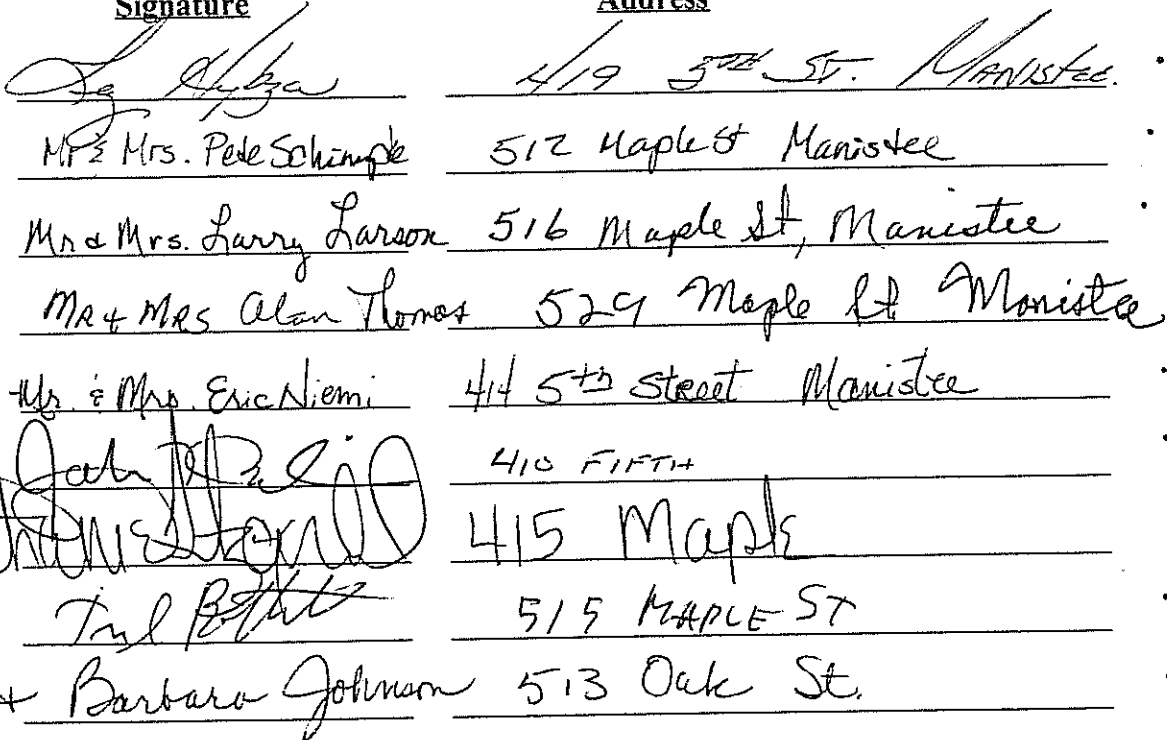 Signature Address
419 5TH ST. MANISTEE.
Mr & Mrs. Pete Schimpke 512 Maple St Manistee
Mr & Mrs. Larry Larson 516 Maple St, Manistee
MR + MRS Alan Thomas 529 Maple St Manistee
Mr. & Mrs. Eric Niemi 414 5th Street Manistee
410 FIFTH
415 Maple
515 MAPLE ST
+ Barbara Johnson 513 Oak St.